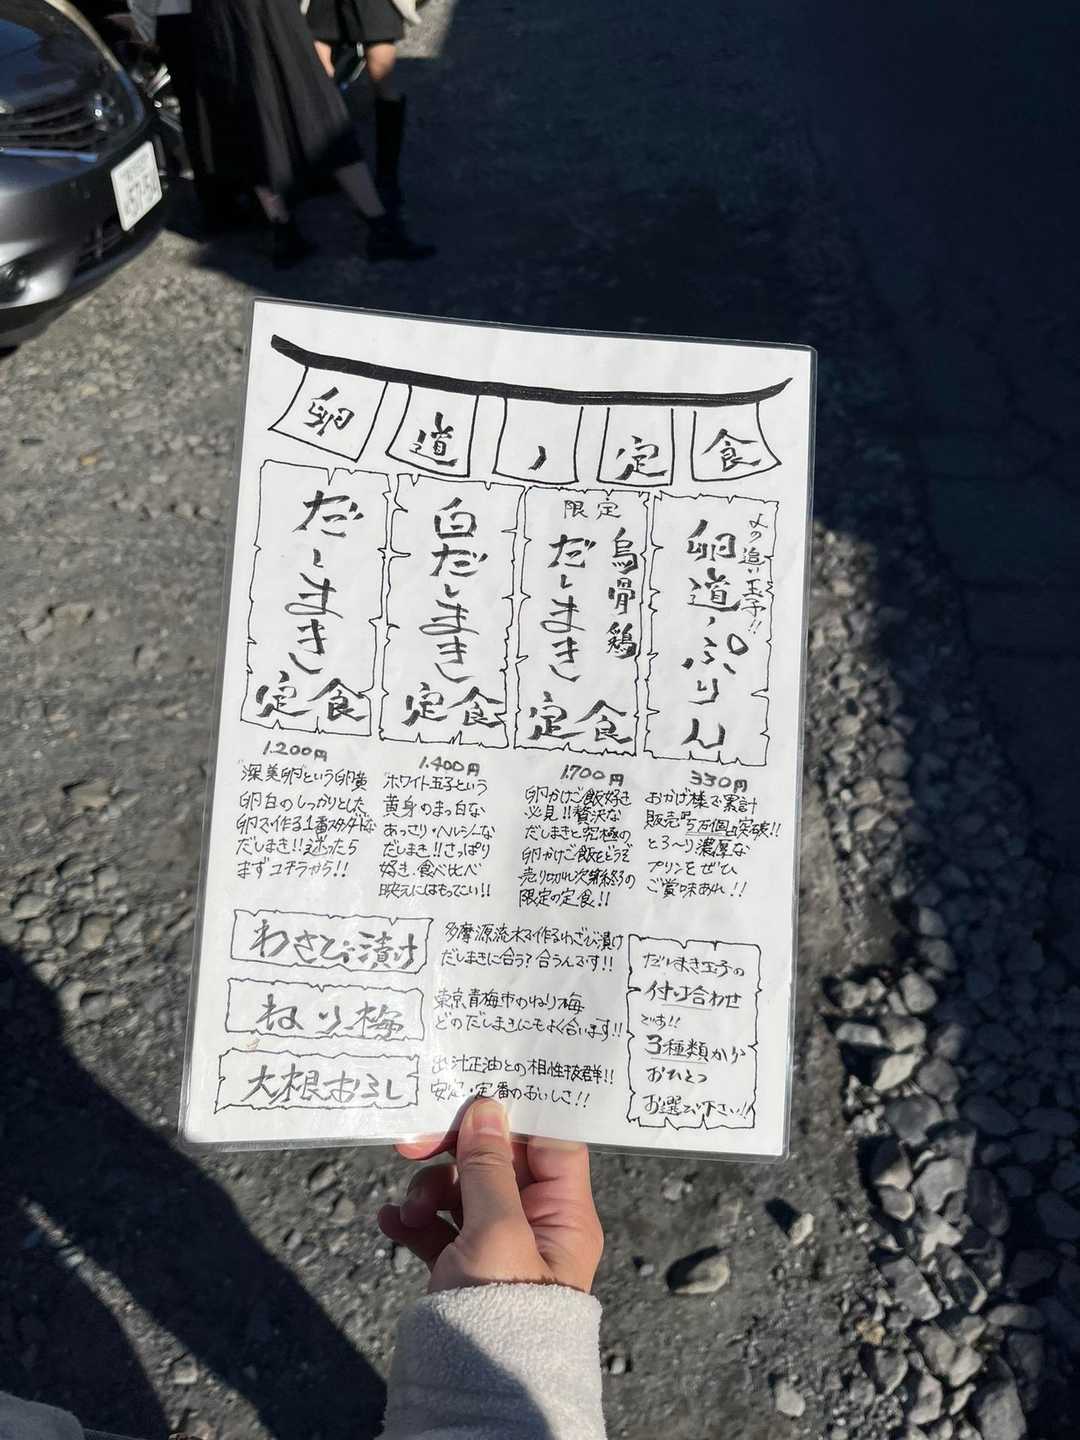 卵道ノ定食
だしまき定食
1.200円
"深美卵"という卵黄
卵白のしっかりとした
卵で作る1番スタンダードな
だしまき!!迷ったら
まずコチラから!!
白だしまき定食
1.400円
ホワイト玉子という
黄身のまっ白な
あっさり・ヘルシーな
だしまき!!さっぱり
好き、食べ比べ
映えにはもってこい!!
限定
烏骨鶏
だしまき定食
1.700円
卵かけご飯好き
必見!!贅沢な
だしまきと究極の
卵かけご飯をどうぞ
売り切れ次第終了の
限定の定食!!
〆の追い玉子!!
卵道ノぷりん
330円
おかげ様で累計
販売 5万個 突破!!
とろ〜り濃厚な
プリンをぜひ
ご賞味あれ!!
わさび漬け
多摩源流水で作るわさび漬け
だしまきに合う?合うんです!!
ねり梅
東京青梅市のねり梅
どのだしまきにもよく合います!!
大根おろし
出汁正油との相性抜群!!
安定・定番のおいしさ!!
だしまき玉子の
付け合わせ
です!!
3種類から
おひとつ
お選び下さい!!